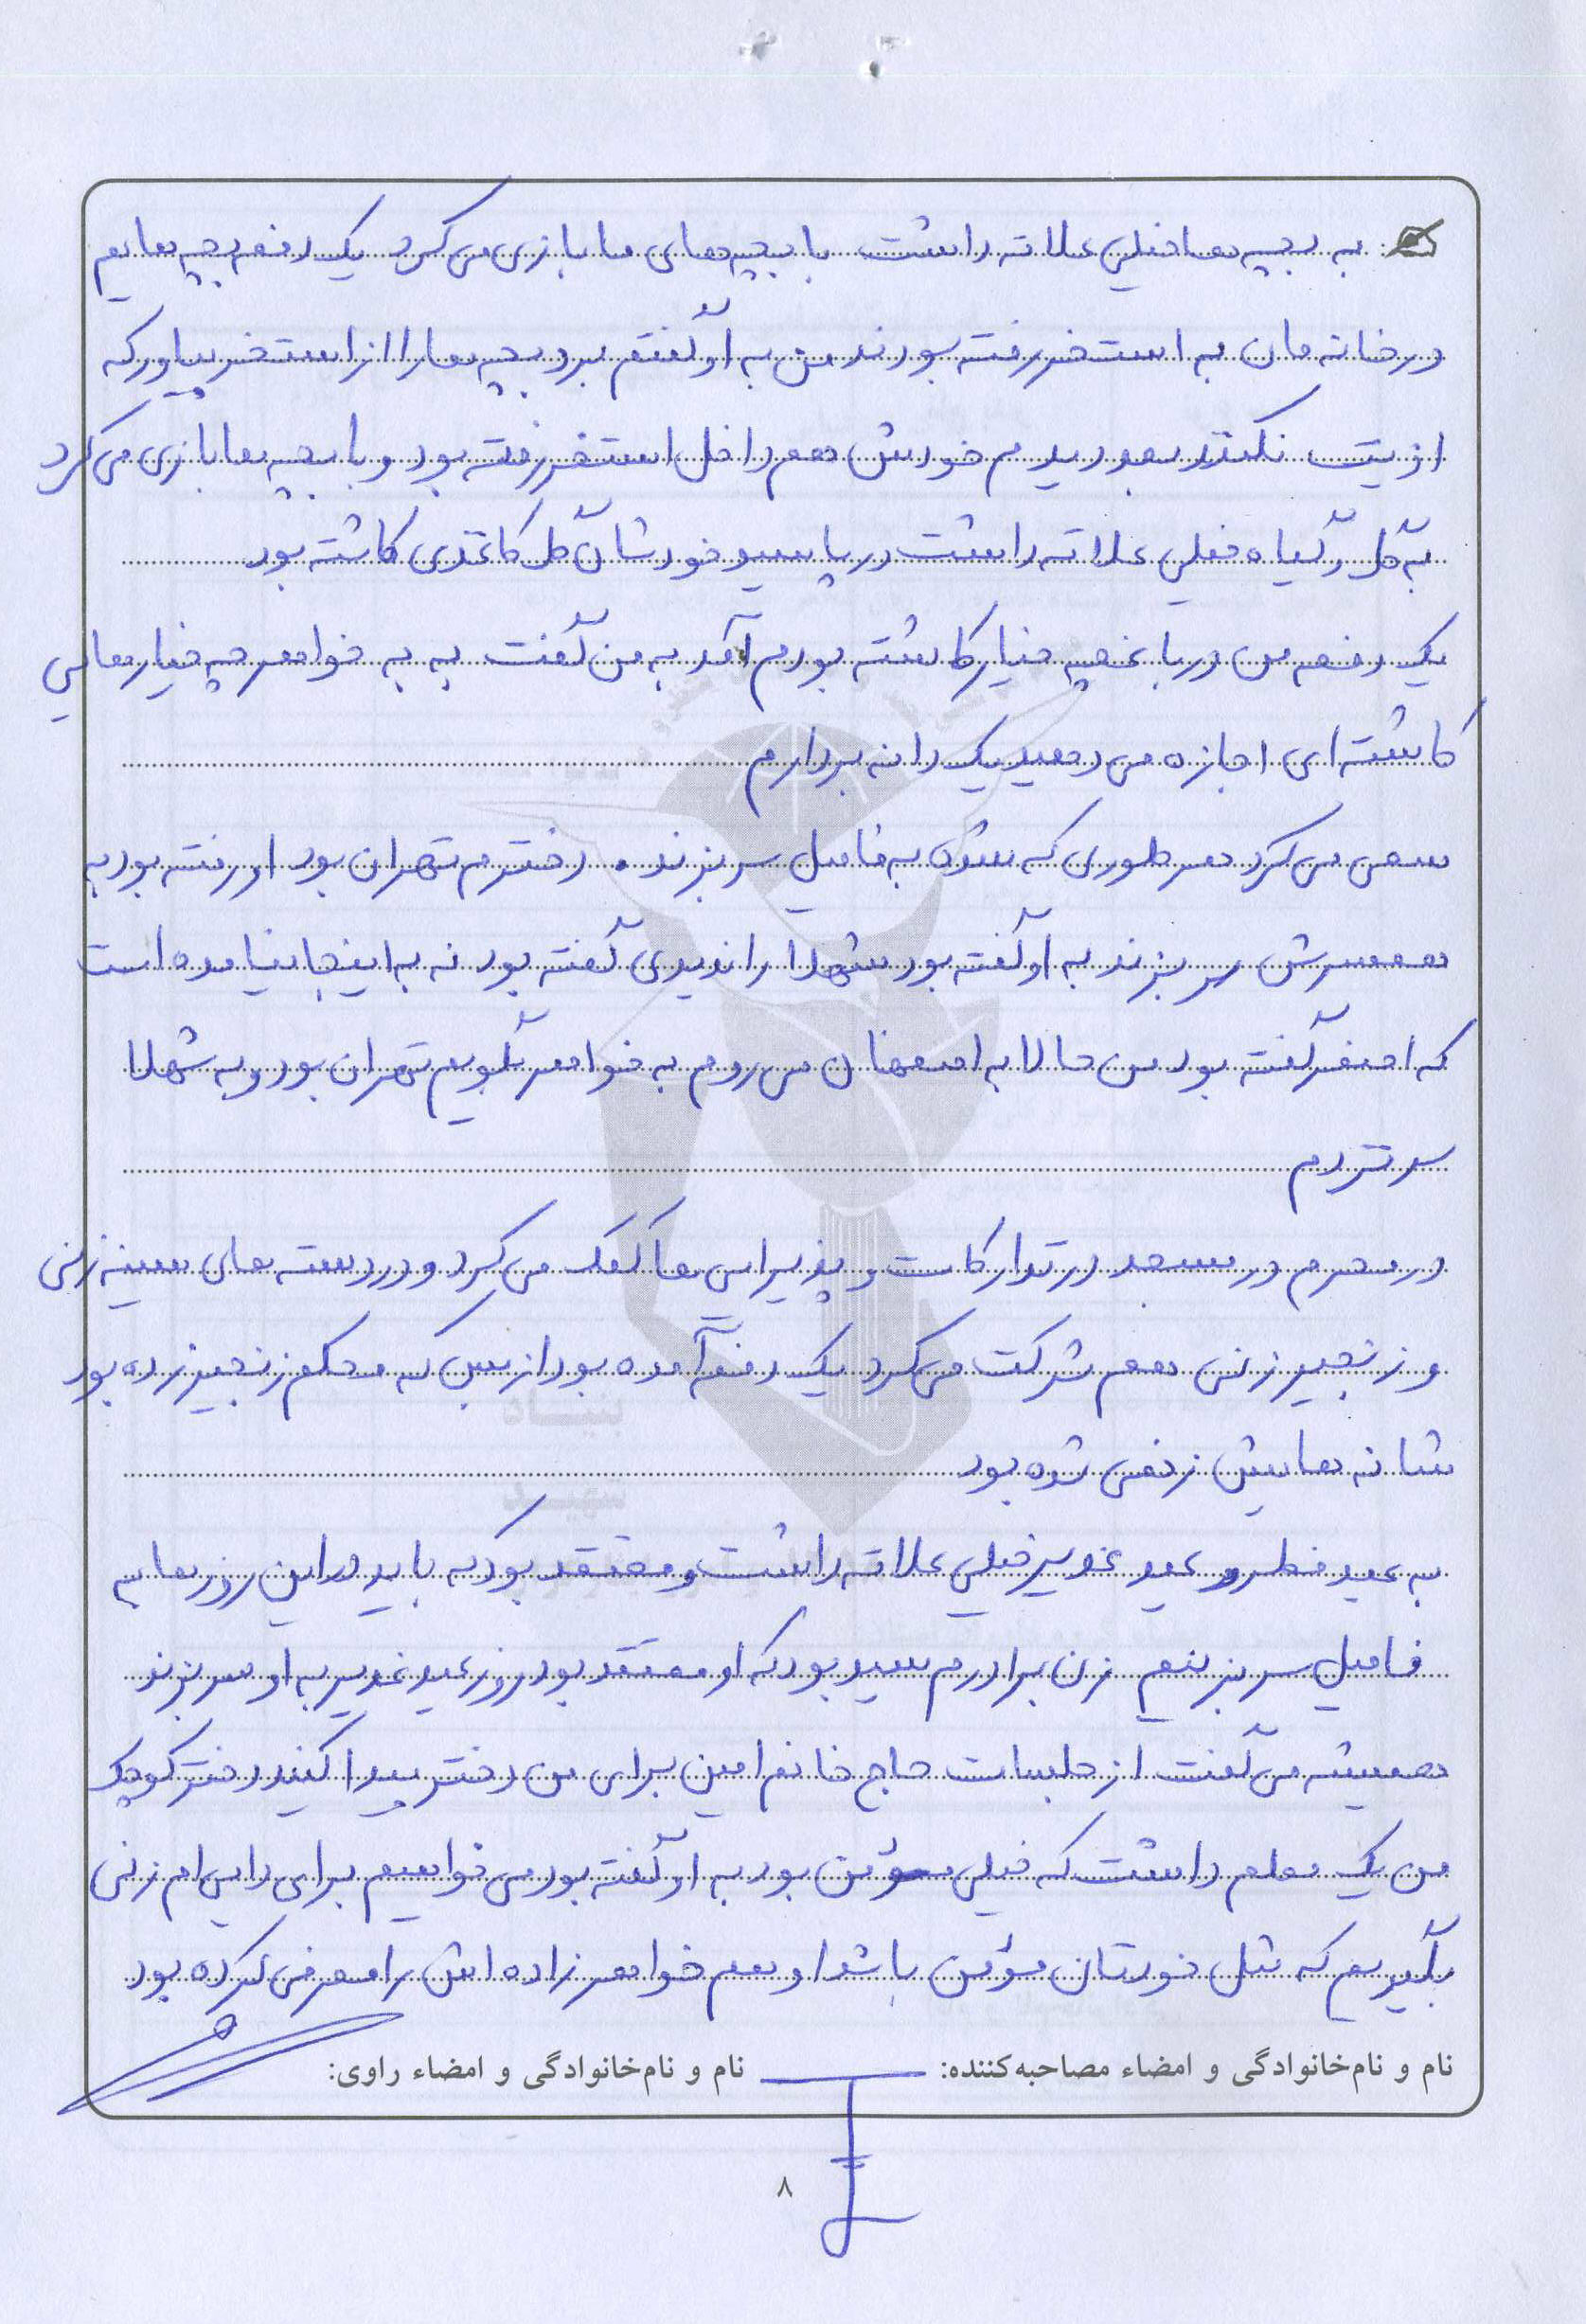 به بچه ها خیلی علاقه داشت با بچه های ما بازی می کرد یک دفعه بچه هایم
در خانه مان به استخر رفته بودند من به او گفتم برو بچه ها را از استخر بیاور که
اذیت نکنند بعد دیدم خودش هم داخل استخر رفته بود و با بچه ها بازی می کرد
به گل و گیاه خیلی علاقه داشت در پاسیو خودشان گل کاغذی کاشته بود
یک دفعه من در باغچه خیار کاشته بودم آمد به من گفت به به خواهر چه خیارهایی
کاشته ای اجازه می دهید یک دانه بردارم
سعی می کرد هر طوری که شده به فامیل سر بزند. دخترم تهران بود او رفته بود به
همسرش سر بزند به او گفته بود شهلا را ندیدی گفته بود نه به اینجا نیامده است
که اصغر گفته بود من حالا به اصفهان می روم به خواهر بگویم تهران بود و به شهلا
سر نزدم
در محرم در مسجد در تدارکات و پذیرایی ها کمک می کرد و در دسته های سینه زنی
و زنجیر زنی هم شرکت می کرد یک دفعه آمده بود از بس که محکم زنجیر زده بود
شانه هایش زخمی شده بود
به عید فطر و عید غدیر خیلی علاقه داشت و معتقد بود که باید در این روزها به
فامیل سر بزنیم زن برادرم سید بود که او معتقد بود روز عید غدیر به او سر بزند
همیشه می گفت از جلسات حاج خانم امین برای من دختر پیدا کنید دختر کوچک
من یک معلم داشت که خیلی مؤمن بود به او گفته بود می خواهیم برای دایی ام زنی
بگیریم که مثل خودتان مؤمن باشد او هم خواهر زاده اش را معرفی کرده بود
نام و نام‌خانوادگی و امضاء مصاحبه‌کننده: نام و نام‌خانوادگی و امضاء راوی:
۸